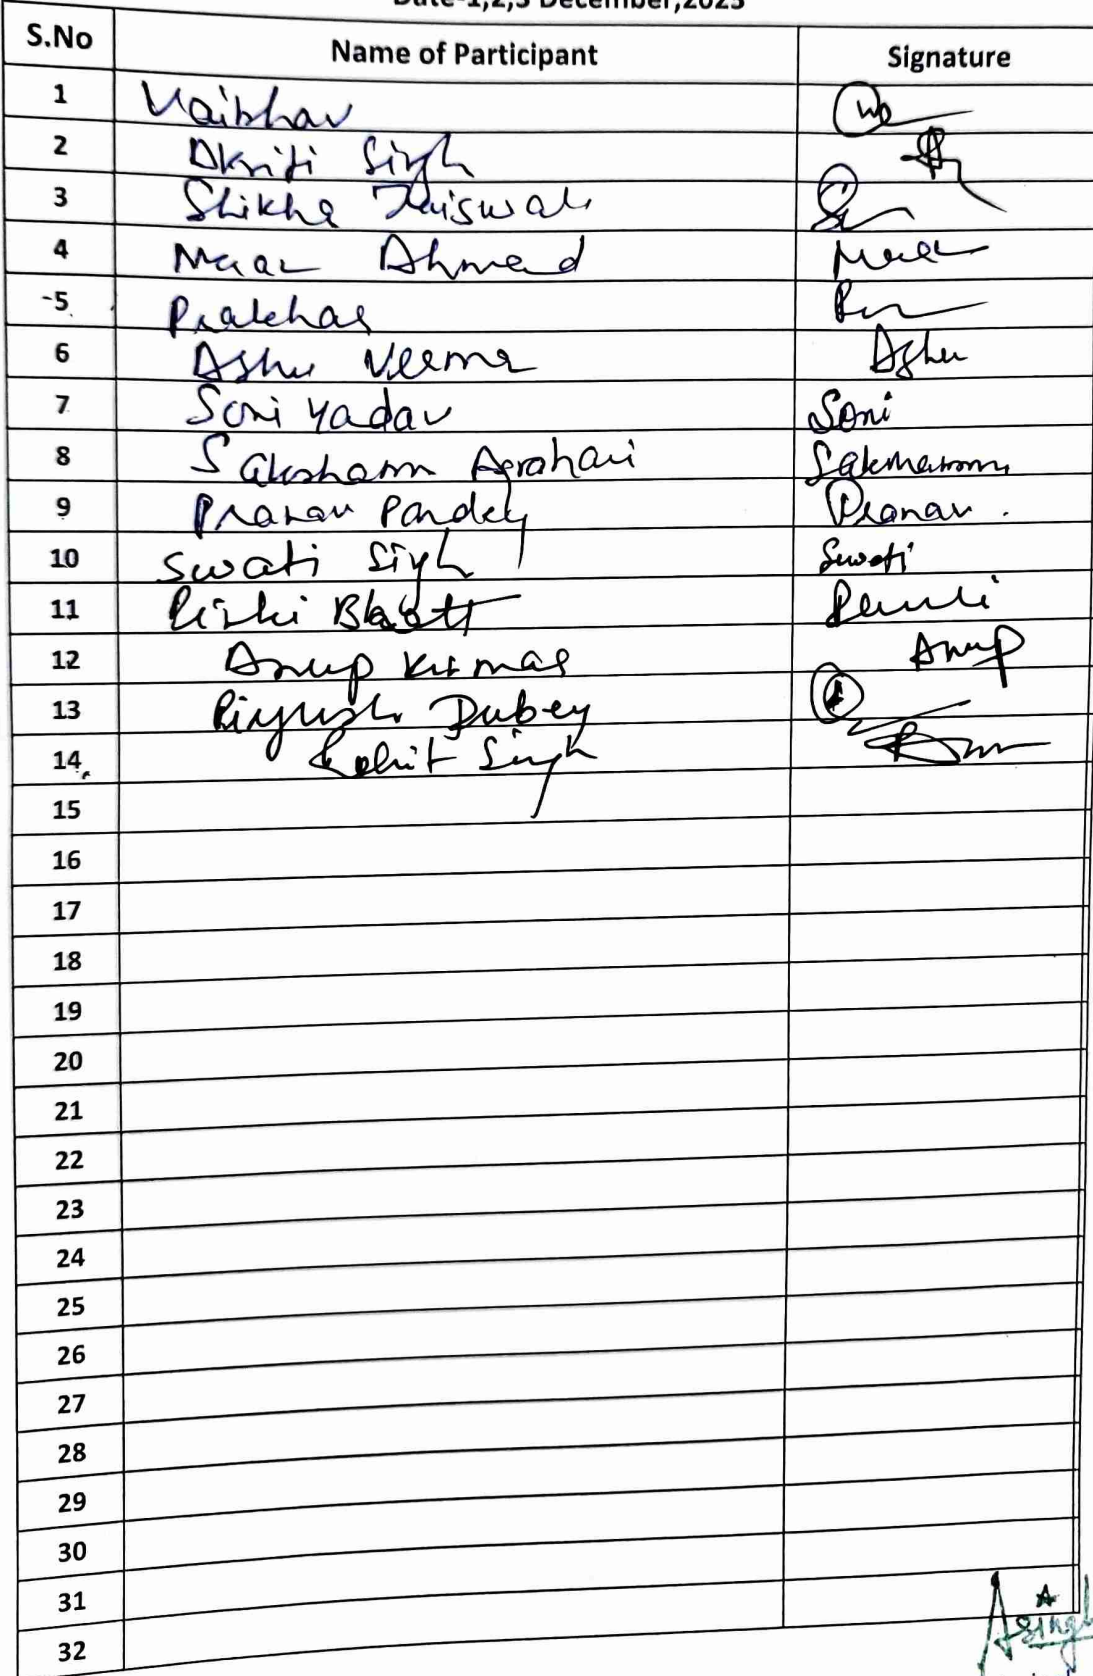 Date-1,2,3 December,2023
S.No Name of Participant Signature
1 Vaibhav
2 Akriti Singh
3 Shikha Jaiswal
4 Ahmad
5 Prakhar
6 Ashu Verma Ashu
7 Soni Yadav Soni
8 Saksham Agrahari Saksham
9 Pranav Pandey Pranav.
10 Swati Singh Swati
11 Bhatt
12 Anup Kumar Anup
13 Piyush Dubey
14 Rohit Singh
15
16
17
18
19
20
21
22
23
24
25
26
27
28
29
30
31
32
Asingh